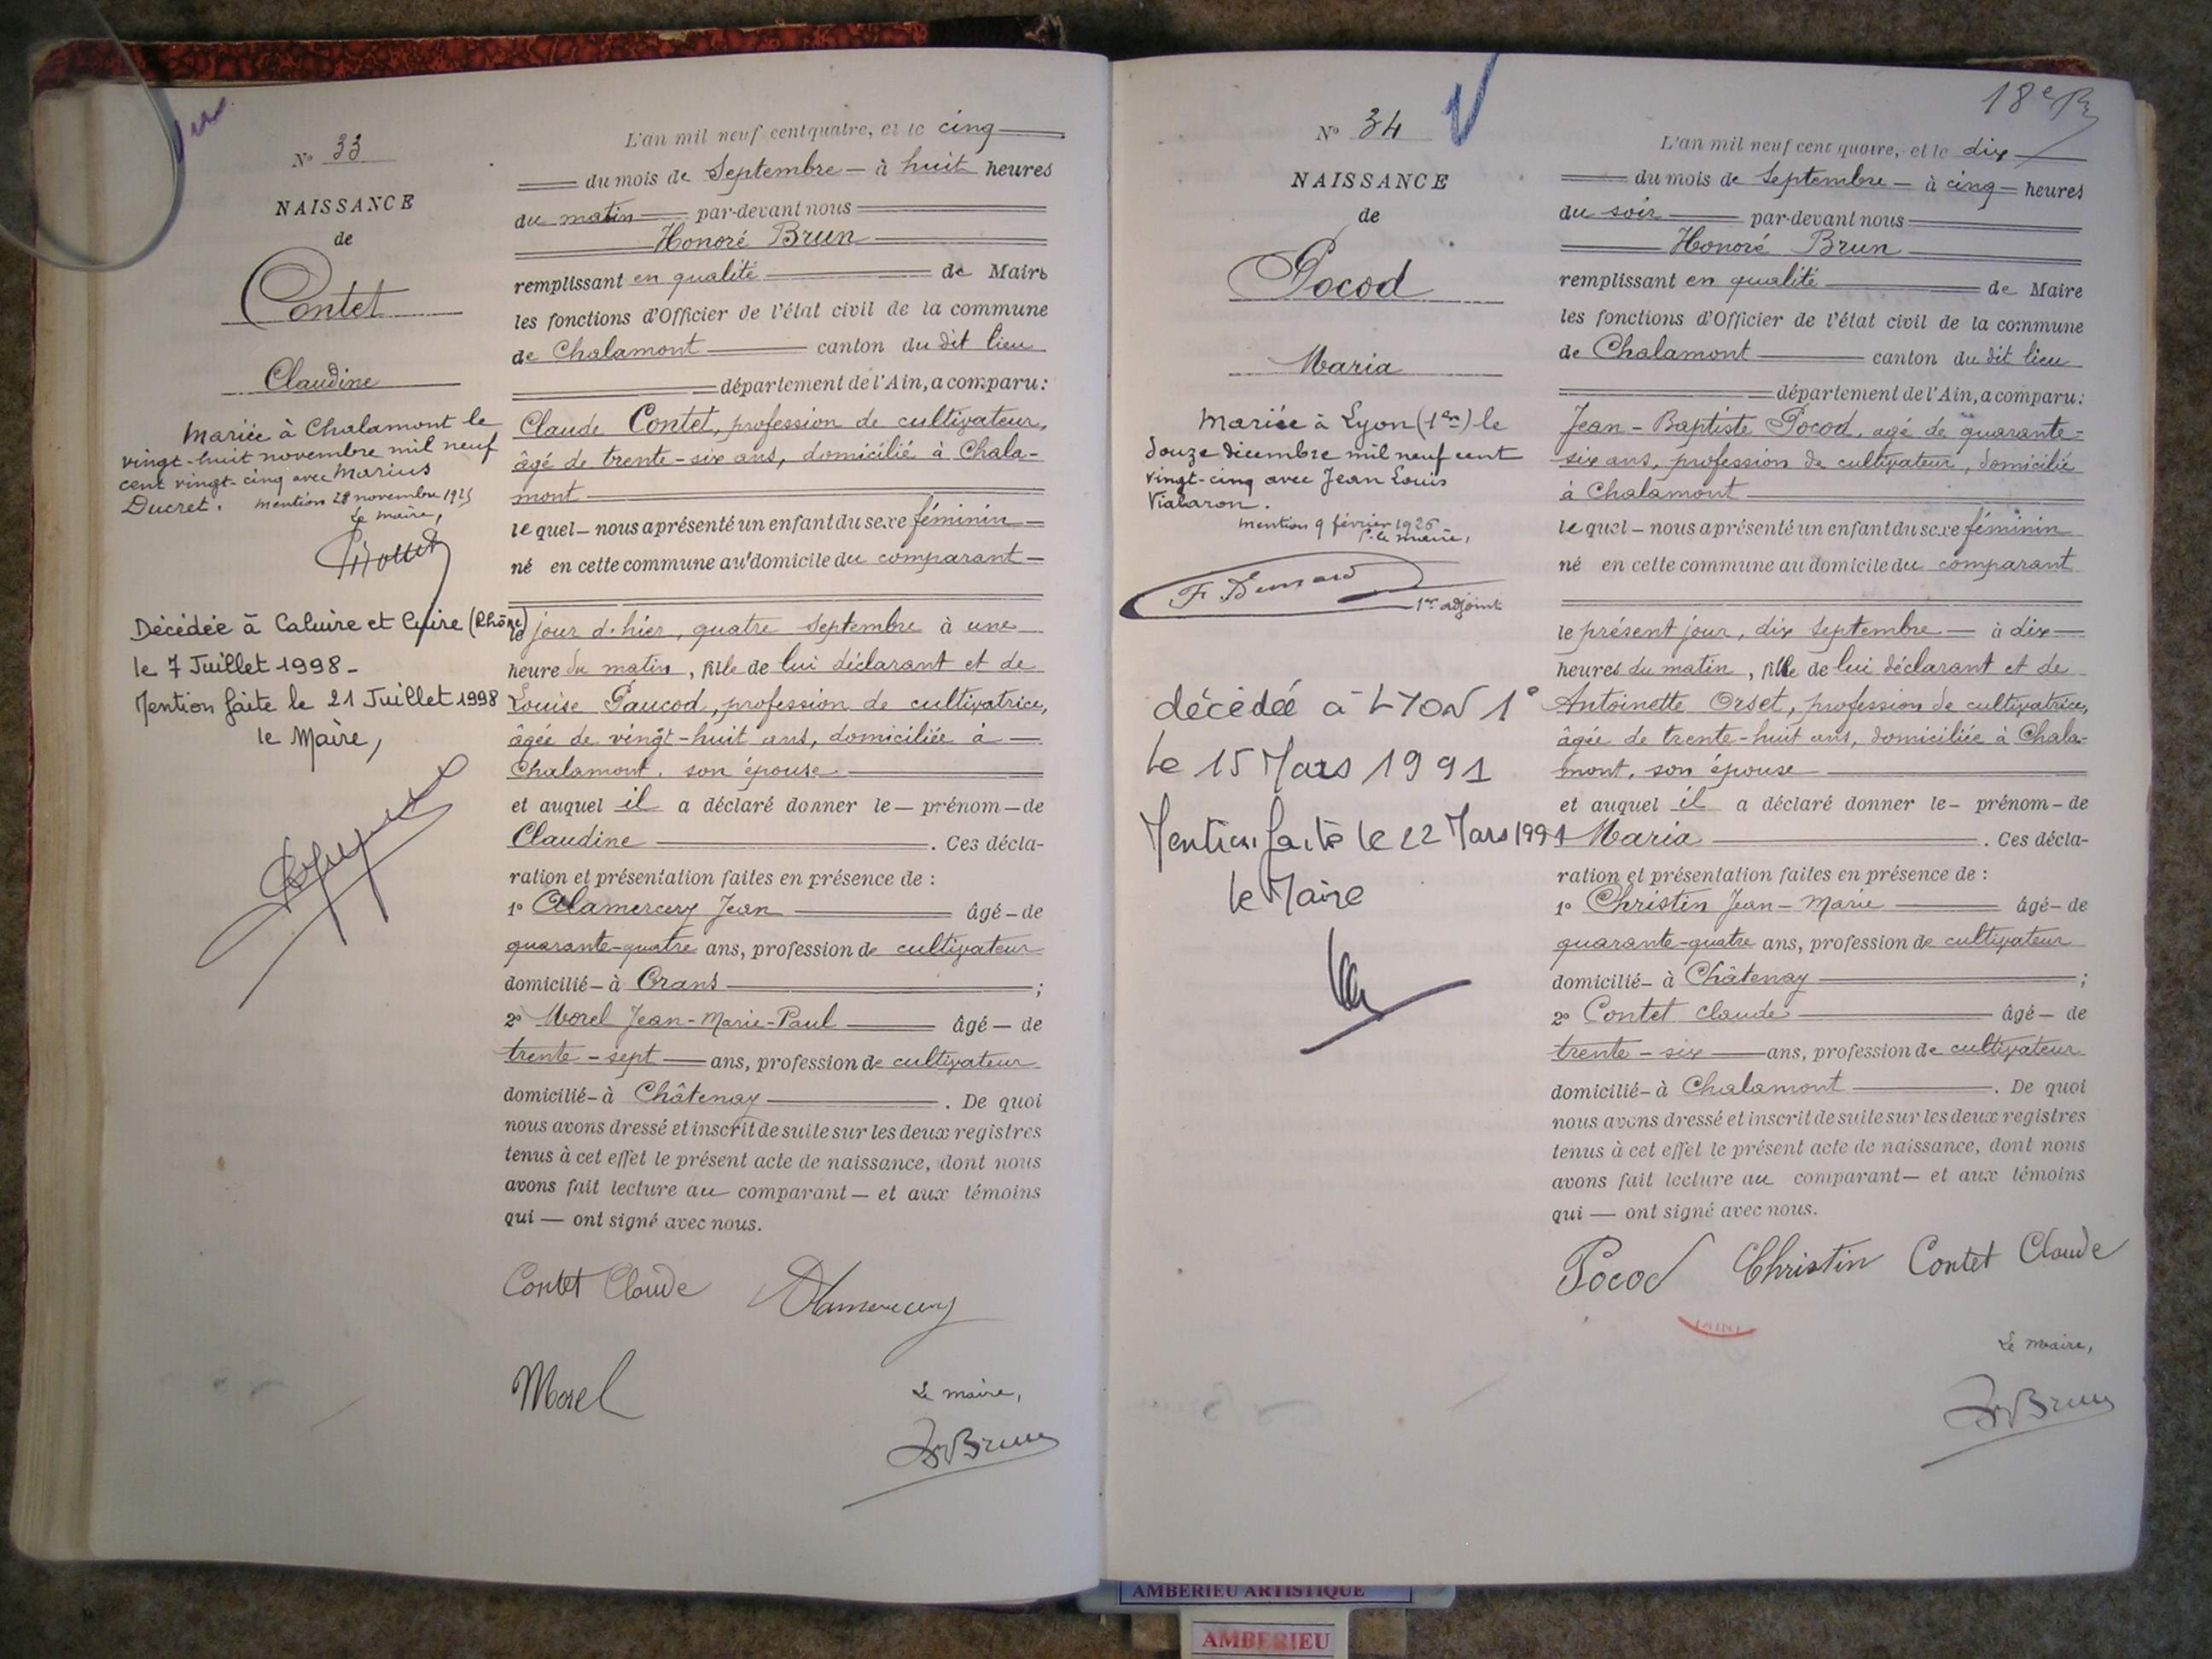 Vu
N° 33
NAISSANCE
de
Contet
Claudine
Mariée à Chalamont le
vingt-huit novembre mil neuf
cent vingt-cinq avec Marius
Ducret. mention 28 novembre 1925
Le maire,
Décédée à Caluire et Cuire (Rhône)
le 7 Juillet 1998-
Mention faite le 21 Juillet 1998
le Maire,
L'an mil neuf cent quatre, et le cinq
du mois de Septembre — à huit heures
du matin par-devant nous
Honoré Brun
remplissant en qualité de Maire
les fonctions d'Officier de l'état civil de la commune
de Chalamont canton du dit lieu
département de l'Ain, a comparu:
Claude Contet, profession de cultivateur,
âgé de trente-six ans, domicilié à Chala-
mont
lequel — nous a présenté un enfant du sexe féminin —
né en cette commune au domicile du comparant —
le jour d'hier, quatre Septembre à une
heure du matin, fille de lui déclarant et de
Louise Paucod, profession de cultivatrice,
âgée de vingt-huit ans, domiciliée à —
Chalamont, son épouse
et auquel il a déclaré donner le — prénom — de
Claudine. Ces décla-
ration et présentation faites en présence de :
1° Alamercery Jean âgé — de
quarante-quatre ans, profession de cultivateur
domicilié — à Crans ;
2° Morel Jean-Marie-Paul âgé — de
trente-sept ans, profession de cultivateur
domicilié — à Châtenay. De quoi
nous avons dressé et inscrit de suite sur les deux registres
tenus à cet effet le présent acte de naissance, dont nous
avons fait lecture au comparant — et aux témoins
qui — ont signé avec nous.
Contet Claude Alamercery
Morel
Le maire,
Hré Brun
18e
N° 34
NAISSANCE
de
Pocod
Maria
Mariée à Lyon (1er) le
douze décembre mil neuf cent
vingt-cinq avec Jean Louis
Vialaron.
mention 9 février 1926-
P. le maire,
1er adjoint
décédée à LYON 1°
le 15 Mars 1991
Mention faite le 22 Mars 1991
le Maire
L'an mil neuf cent quatre, et le dix
du mois de Septembre — à cinq — heures
du soir par-devant nous
Honoré Brun
remplissant en qualité de Maire
les fonctions d'Officier de l'état civil de la commune
de Chalamont canton du dit lieu
département de l'Ain, a comparu:
Jean-Baptiste Pocod, agé de quarante-
six ans, profession de cultivateur, domicilié
à Chalamont
lequel — nous a présenté un enfant du sexe féminin
né en cette commune au domicile du comparant
le présent jour, dix Septembre — à dix —
heures du matin, fille de lui déclarant et de
Antoinette Orset, profession de cultivatrice,
âgée de trente-huit ans, domiciliée à Chala-
mont, son épouse
et auquel il a déclaré donner le — prénom — de
Maria. Ces décla-
ration et présentation faites en présence de :
1° Christin Jean-Marie âgé — de
quarante-quatre ans, profession de cultivateur
domicilié — à Châtenay ;
2° Contet Claude âgé — de
trente-six ans, profession de cultivateur
domicilié — à Chalamont. De quoi
nous avons dressé et inscrit de suite sur les deux registres
tenus à cet effet le présent acte de naissance, dont nous
avons fait lecture au comparant — et aux témoins
qui — ont signé avec nous.
Pocod Christin Contet Claude
Le maire,
Hré Brun
AMBERIEU ARTISTIQUE
AMBERIEU